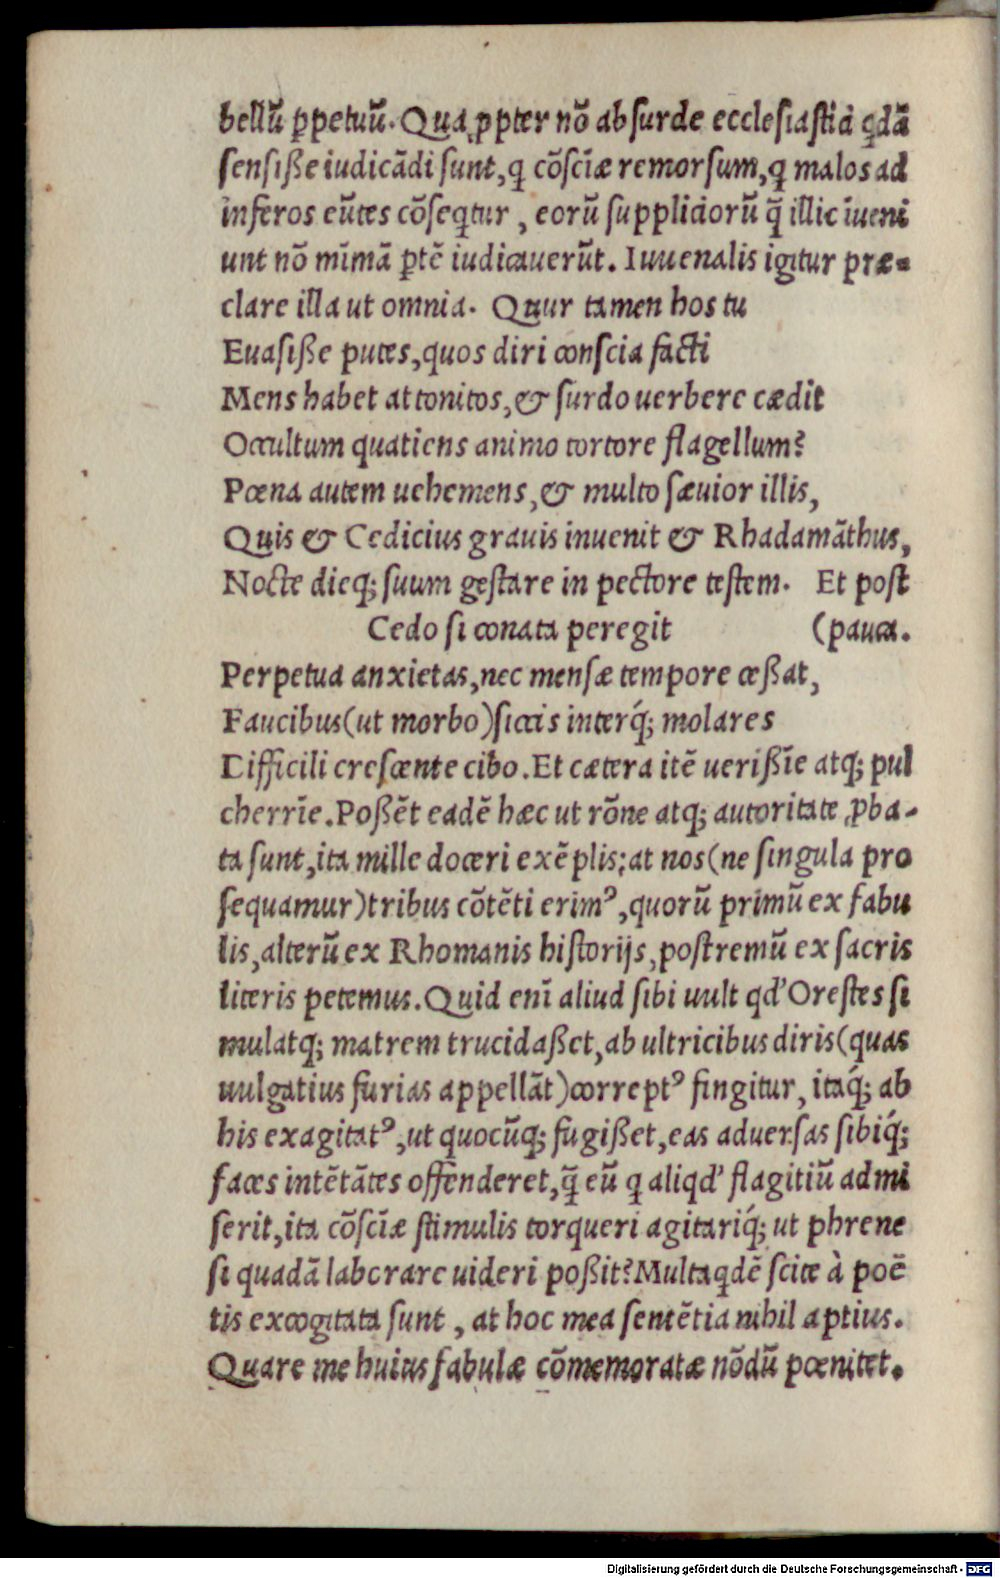 bellũ ꝑpetuũ. Qua ꝓpter nõ absurde ecclesiastici qdã
sensiße iudicãdi sunt, q cõsciæ remorsum, q malos ad
inferos eũtes cõseqtur, eorũ suppliciorũ q̃ illic ĩueni
unt nõ mĩmã ꝑtẽ iudicauerũt. Iuuenalis igitur præ=
clare illa ut omnia. Quur tamen hos tu
Euasiße putes, quos diri conscia facti
Mens habet attonitos, & surdo uerbere cædit
Occultum quatiens animo tortore flagellum?
Pœna autem uehemens, & multo sæuior illis,
Quis & Cedicius grauis inuenit & Rhadamãthus,
Nocte dieq; suum gestare in pectore testem. Et post
Cedo si conata peregit (pauca.
Perpetua anxietas, nec mensæ tempore ceßat,
Faucibus (ut morbo) siccis interq́; molares
Difficili crescente cibo. Et cætera itẽ uerißĩe atq; pul
cherrĩe. Poßẽt eadẽ hæc ut rõne atq; autoritate ꝓba-
ta sunt, ita mille doceri exẽplis; at nos (ne singula pro
sequamur) tribus cõtẽti erimꝰ, quorũ primũ ex fabu
lis, alterũ ex Rhomanis historijs, postremũ ex sacris
literis petemus. Quid enĩ aliud sibi uult qd' Orestes si
mulatq; matrem trucidaßet, ab ultricibus diris (quas
uulgatius furias appellãt) correptꝰ fingitur, itaq́; ab
his exagitatꝰ, ut quocũq; fugißet, eas aduersas sibiq́;
faces intẽtãtes offenderet, q̃ eũ q aliqd' flagitiũ admi
serit, ita cõsciæ stimulis torqueri agitariq́; ut phrene
si quadã laborare uideri poßit? Multa qdẽ scite à poë
tis excogitata sunt, at hoc mea sentẽtia nihil aptius.
Quare me huius fabulæ cõmemoratæ nõdũ pœnitet.
Digitalisierung gefördert durch die Deutsche Forschungsgemeinschaft - DFG